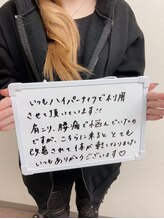 いつもハイパーナイフで利用
させて頂いています!!
肩こり、腰痛で悩んでいたの
ですが、こちらに来ると、とても
改善されて体が軽くなります。
いつもありがとうございます♡